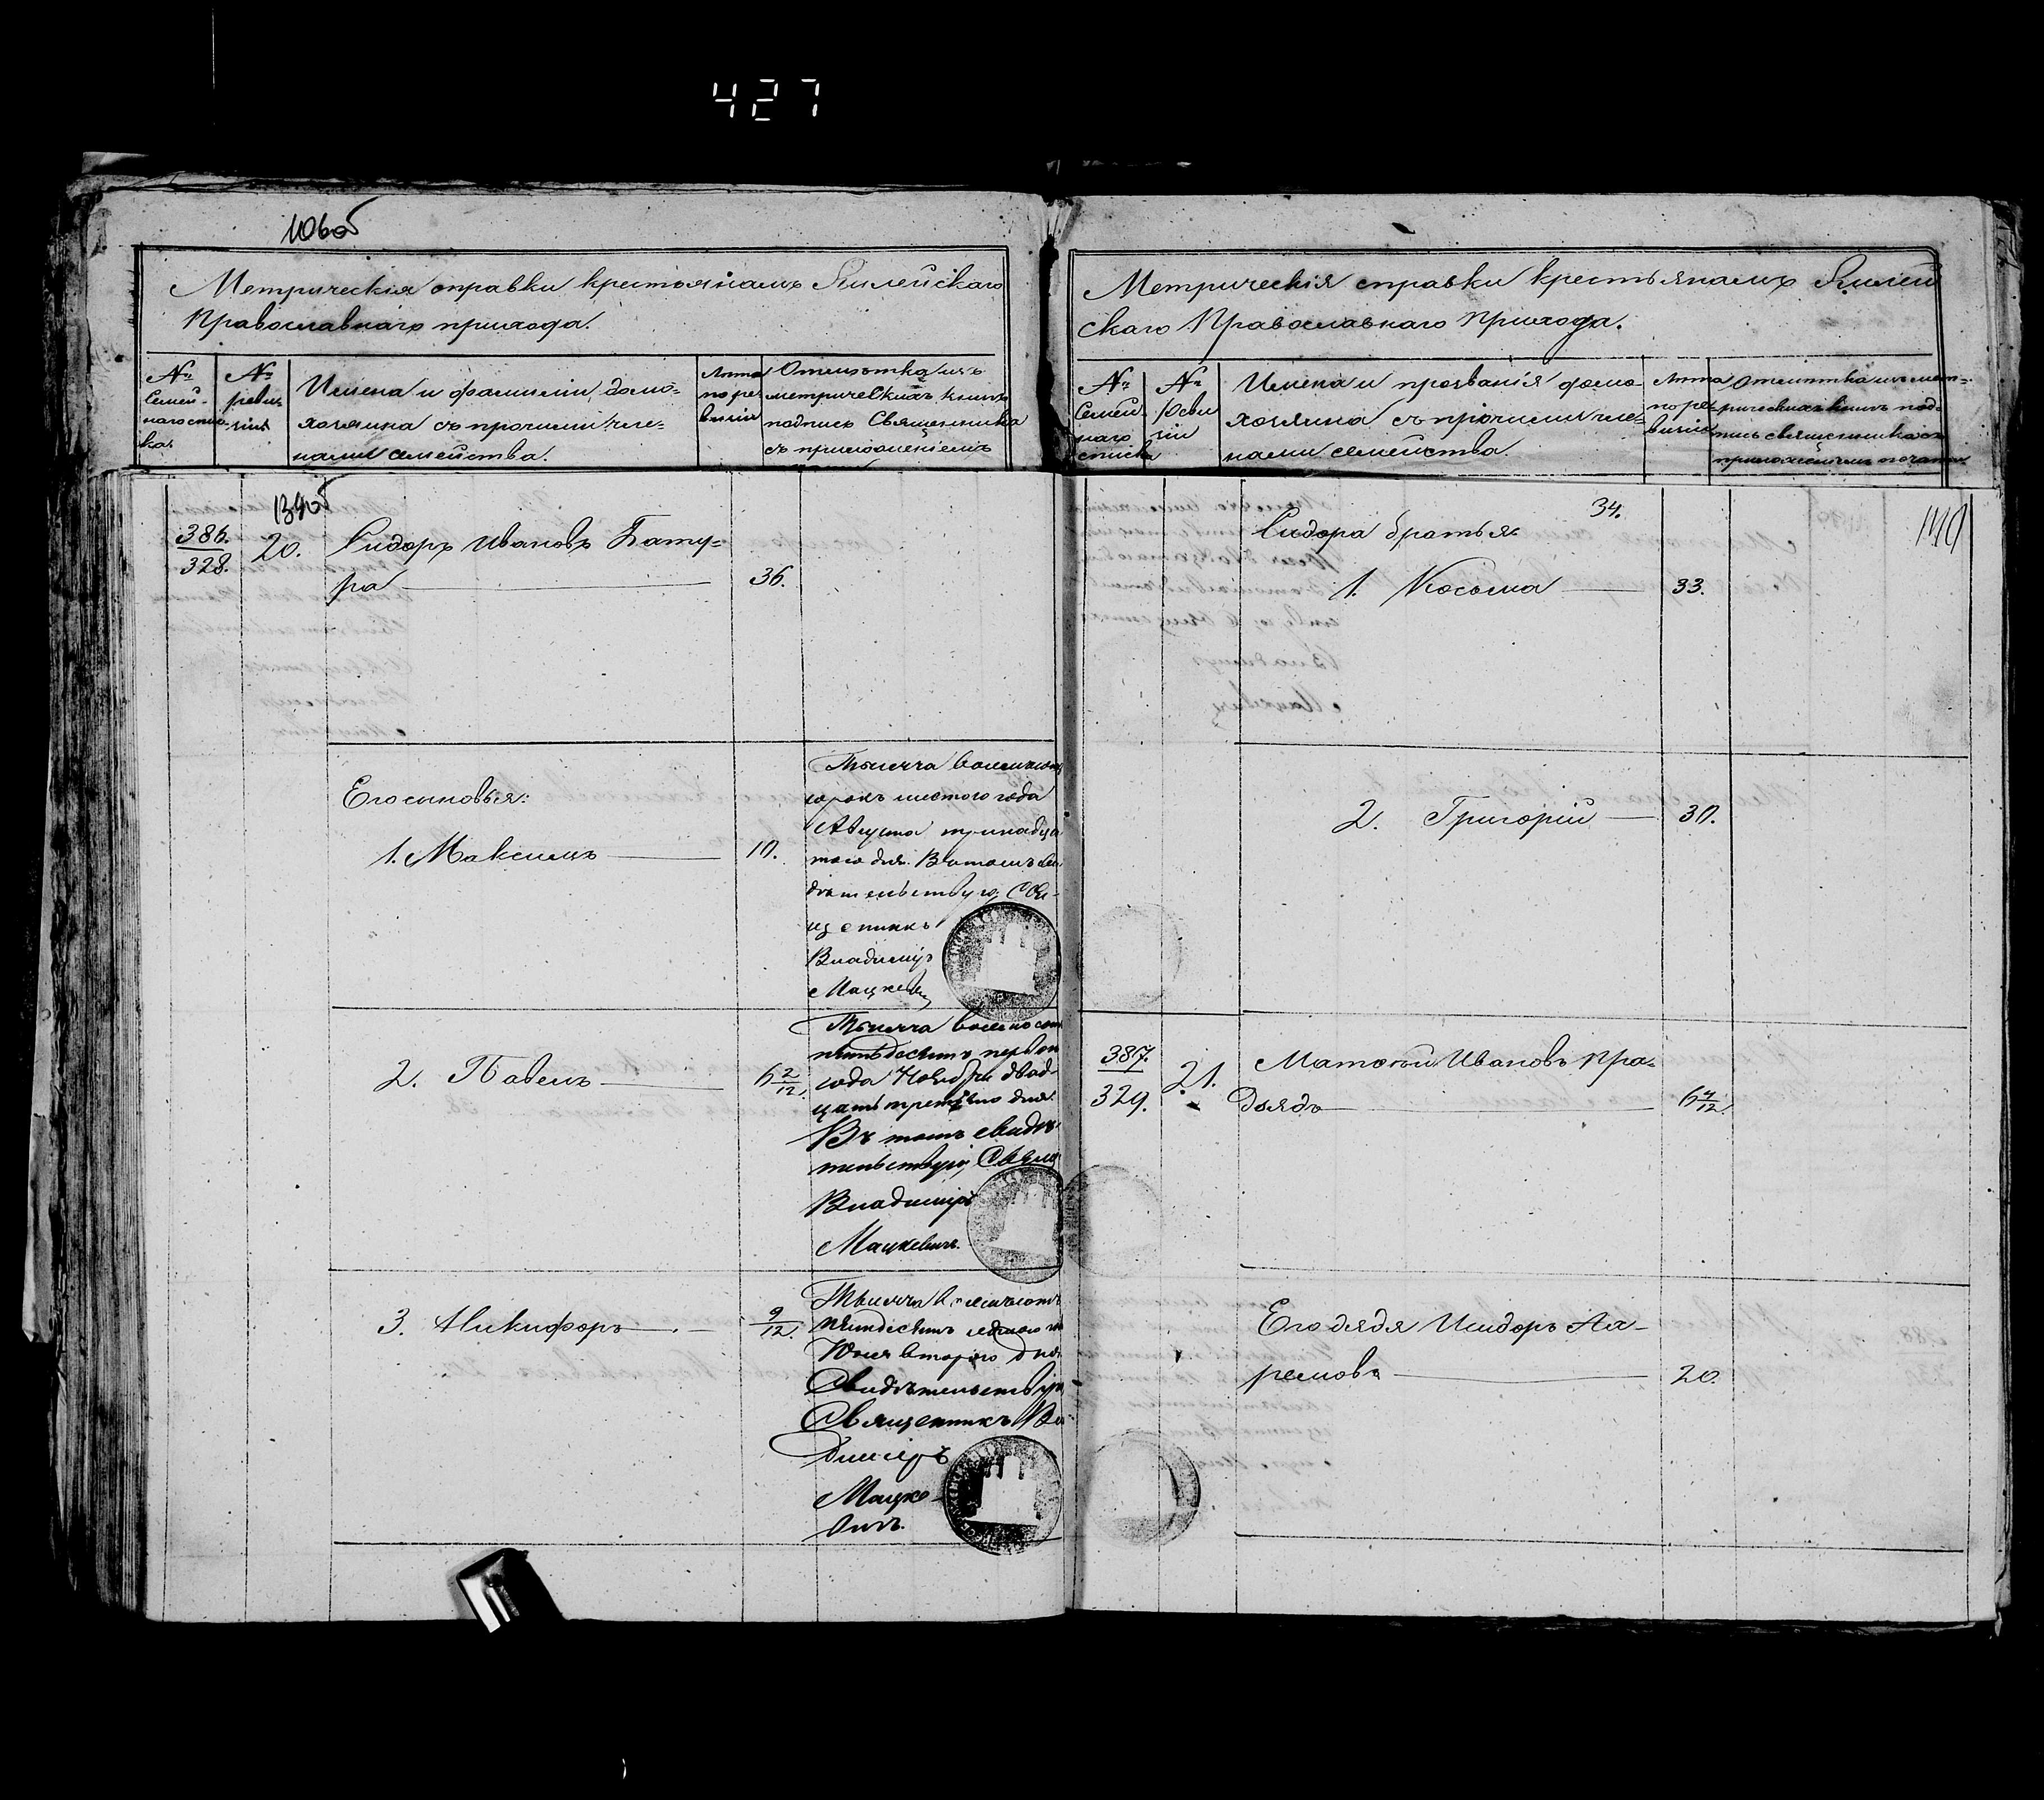 427
Метрическія справки крестьянамъ Якилейскаго
Православнаго прихода.
№
Семей-
наго спис-
ка
№
реви-
зіи
Имена и фамиліи домо-
хозяина съ прочими чле-
нами семейства.
Лѣта
по ре
визіи
Отмѣтка изъ
метрическихъ книгъ
подпись Священника
съ приложеніемъ
386.
328.
20.
Сидоръ Ивановъ Бату-
ра
36.
Его сыновья:
1. Максимъ
10.
Тысяча восемьсотъ
сорокъ шестого года
Августа тринадца
того дня. Въ томъ сви
дѣтельствую Свя-
щенникъ
Владиміръ
Мацкевич
2. Павелъ
6 2/12.
Тысяча восемьсот
пятьдесятъ перваго
года Ноября двад-
цать третьяго дня.
Въ томъ свидѣ
тельствую Свящ
Владиміръ
Мацкевичъ.
3. Никифоръ
9/12.
Тысяча восемьсотъ
пятидесятъ го
Юня второго дня
Свидѣтельствую
Священникъ Вла
диміръ
Мацке-
вичъ.
Метрическія справки крестьянамъ Якилей
скаго Православнаго Прихода.
№
Семей
наго
списка
№
Реви
зіи
Имена и прозванія домо-
хозяина съ прочими чле-
нами семейства.
Лѣта
по ре-
визіи
Отмѣтка изъ мет-
рическихъ книгъ под-
пись священника съ
приложеніемъ печати
34.
140
Сидора братья
1. Косьма
33.
2. Григорій
30.
387.
329.
21.
Матвѣй Ивановъ Пра-
дзядъ
Его дядя Исидоръ Ла-
20.